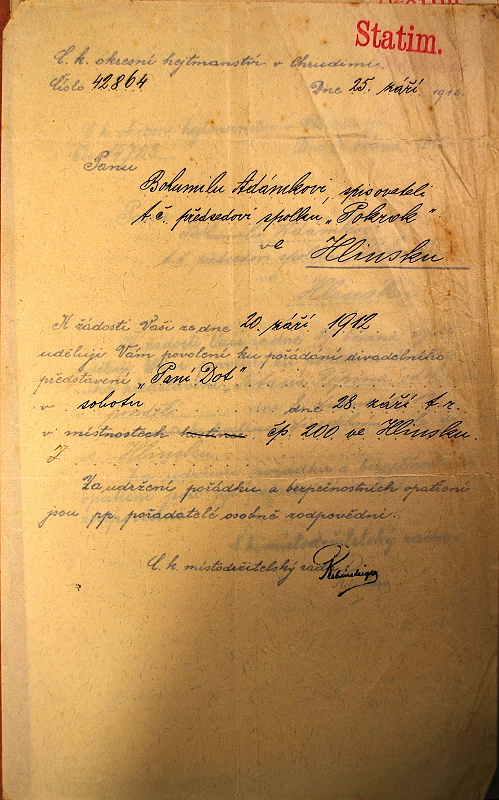 Statim.
C. k. okresní hejtmanství v Chrudimi.
Číslo 42864 Dne 25. září 1912.
Panu
Bohumilu Adámkovi, spisovateli
t. č. předsedovi spolku „Pokrok“
ve Hlinsku
K žádosti Vaší ze dne 20. září 1912
uděluji Vám povolení ku pořádání divadelního
představení „Paní Dot“
v sobotu dne 28. září t. r.
v místnostech hostince čp. 200 ve Hlinsku.
Za udržení pořádku a bezpečnostních opatření
jsou pp. pořadatelé osobně zodpovědni.
C. k. místodržitelský rada: